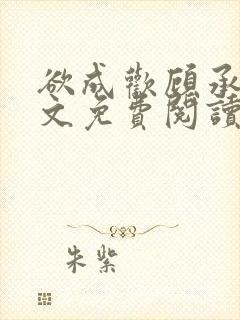 欲成歡顧承
文免費閱讀
朱紫